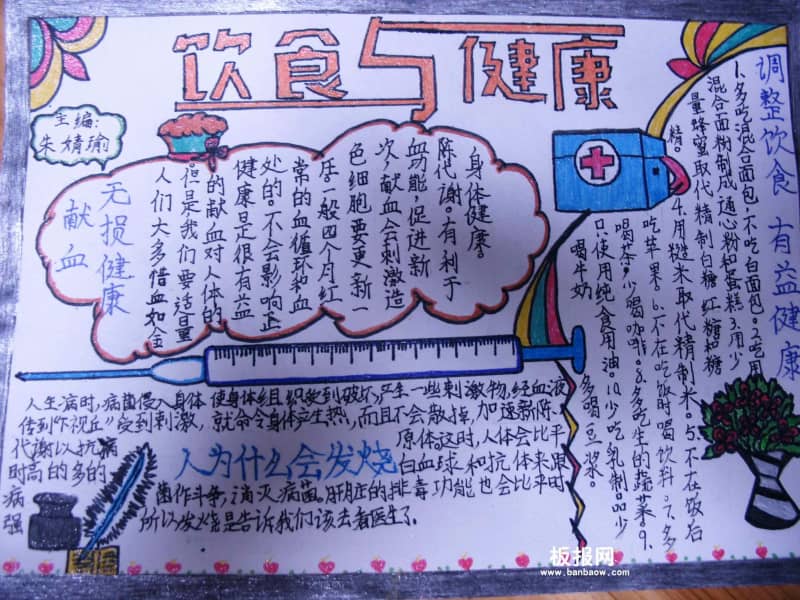 饮食与健康
主编:
朱婧瑜
献血
无损健康
人们大多借血如金
但是我们要适量
的献血对人体的
健康是很有益
处的。不会影响正
常的血循环和血
压一般四个月红
色细胞要更新一
次,献血会刺激造
血功能,促进新
陈代谢。有利于
身体健康。
调整饮食 有益健康
1.多吃混合面包,不吃白面包。2.吃用
混合面粉制成通心粉和蛋糕3.用少
量蜂蜜取代精制白糖 红糖和糖
精。4.用糙米取代精制米。5.不在饭后
吃苹果。6.不在吃饭时喝饮料。7.多
喝茶,少喝咖啡。8.多吃生的蔬菜。9.
只使用纯食用油。10.少吃乳制品少
喝牛奶
多喝豆浆。
人为什么会发烧
人生病时,病菌侵入身体 使身体组织受到破坏,产生一些刺激物,经血液
传到"下视丘"受到刺激,就命令身体产生热,而且不会散掉,加速新陈
代谢以抗病 原体。这时,人体会比平
时高的多的 白血球和抗体来跟
病 菌作斗争,消灭病菌,肝脏的排毒功能也会比平时
强 所以发烧是告诉我们该去看医生了。
板报网
www.banbaow.com